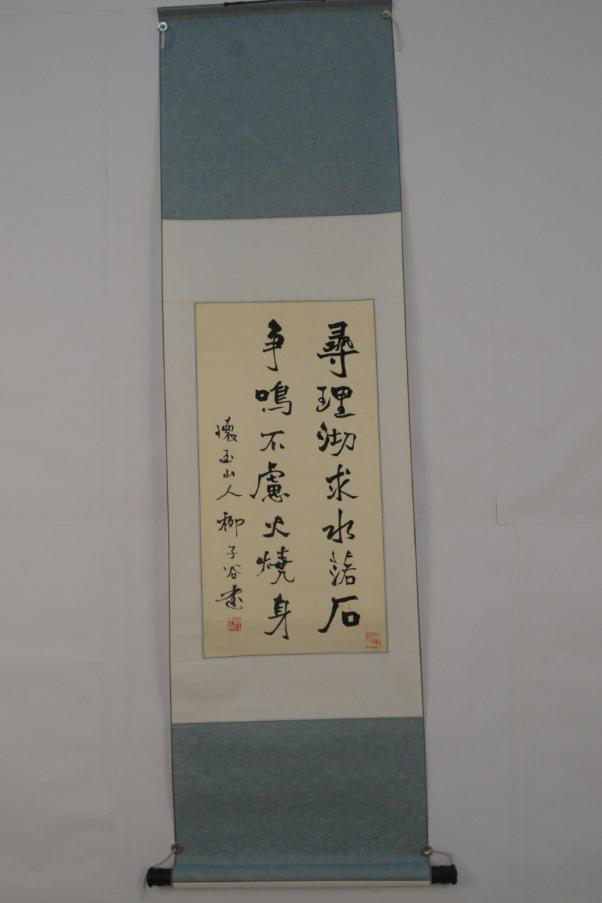 尋理沏求水落石
争鳴不慮火燒身
懷玉山人 柳子谷書